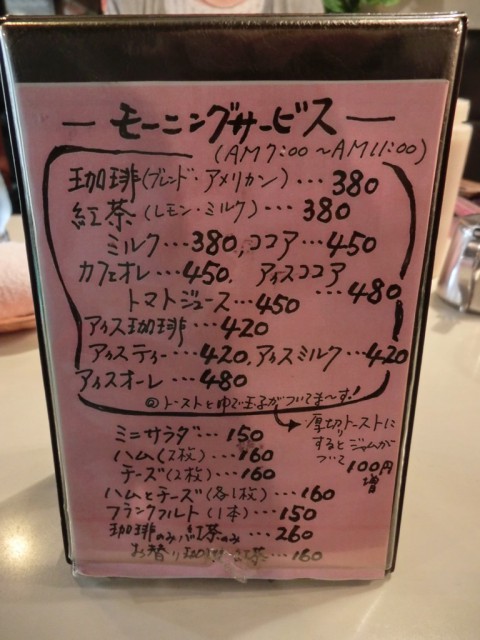 — モーニングサービス —
(AM7:00～AM11:00)
珈琲(ブレンド・アメリカン)…380
紅茶(レモン・ミルク)…380
ミルク…380, ココア…450
カフェオレ…450, アイスココア…480
トマトジュース…450
アイス珈琲…420
アイスティー…420, アイスミルク…420
アイスオーレ…480
トーストとゆで玉子がついてま〜す!
厚切りトーストに
するとジャムが
ついて100円
増
ミニサラダ…150
ハム(2枚)…160
チーズ(2枚)…160
ハムとチーズ(各1枚)…160
フランクフルト(1本)…150
珈琲のみ紅茶のみ…260
お替り珈琲紅茶…160